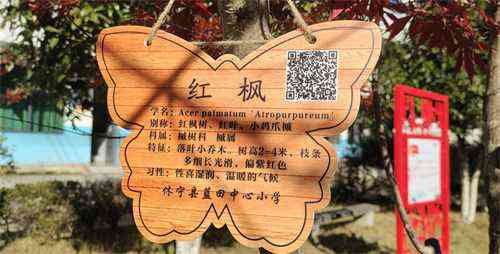 红枫
学名：Acer palmatum 'Atropurpureum'
别称：红枫树、红叶、小鸡爪槭
科属：槭树科 槭属
特征：落叶小乔木。树高2-4米、枝条
多细长光滑、偏紫红色
习性：性喜湿润、温暖的气候
休宁县蓝田中心小学